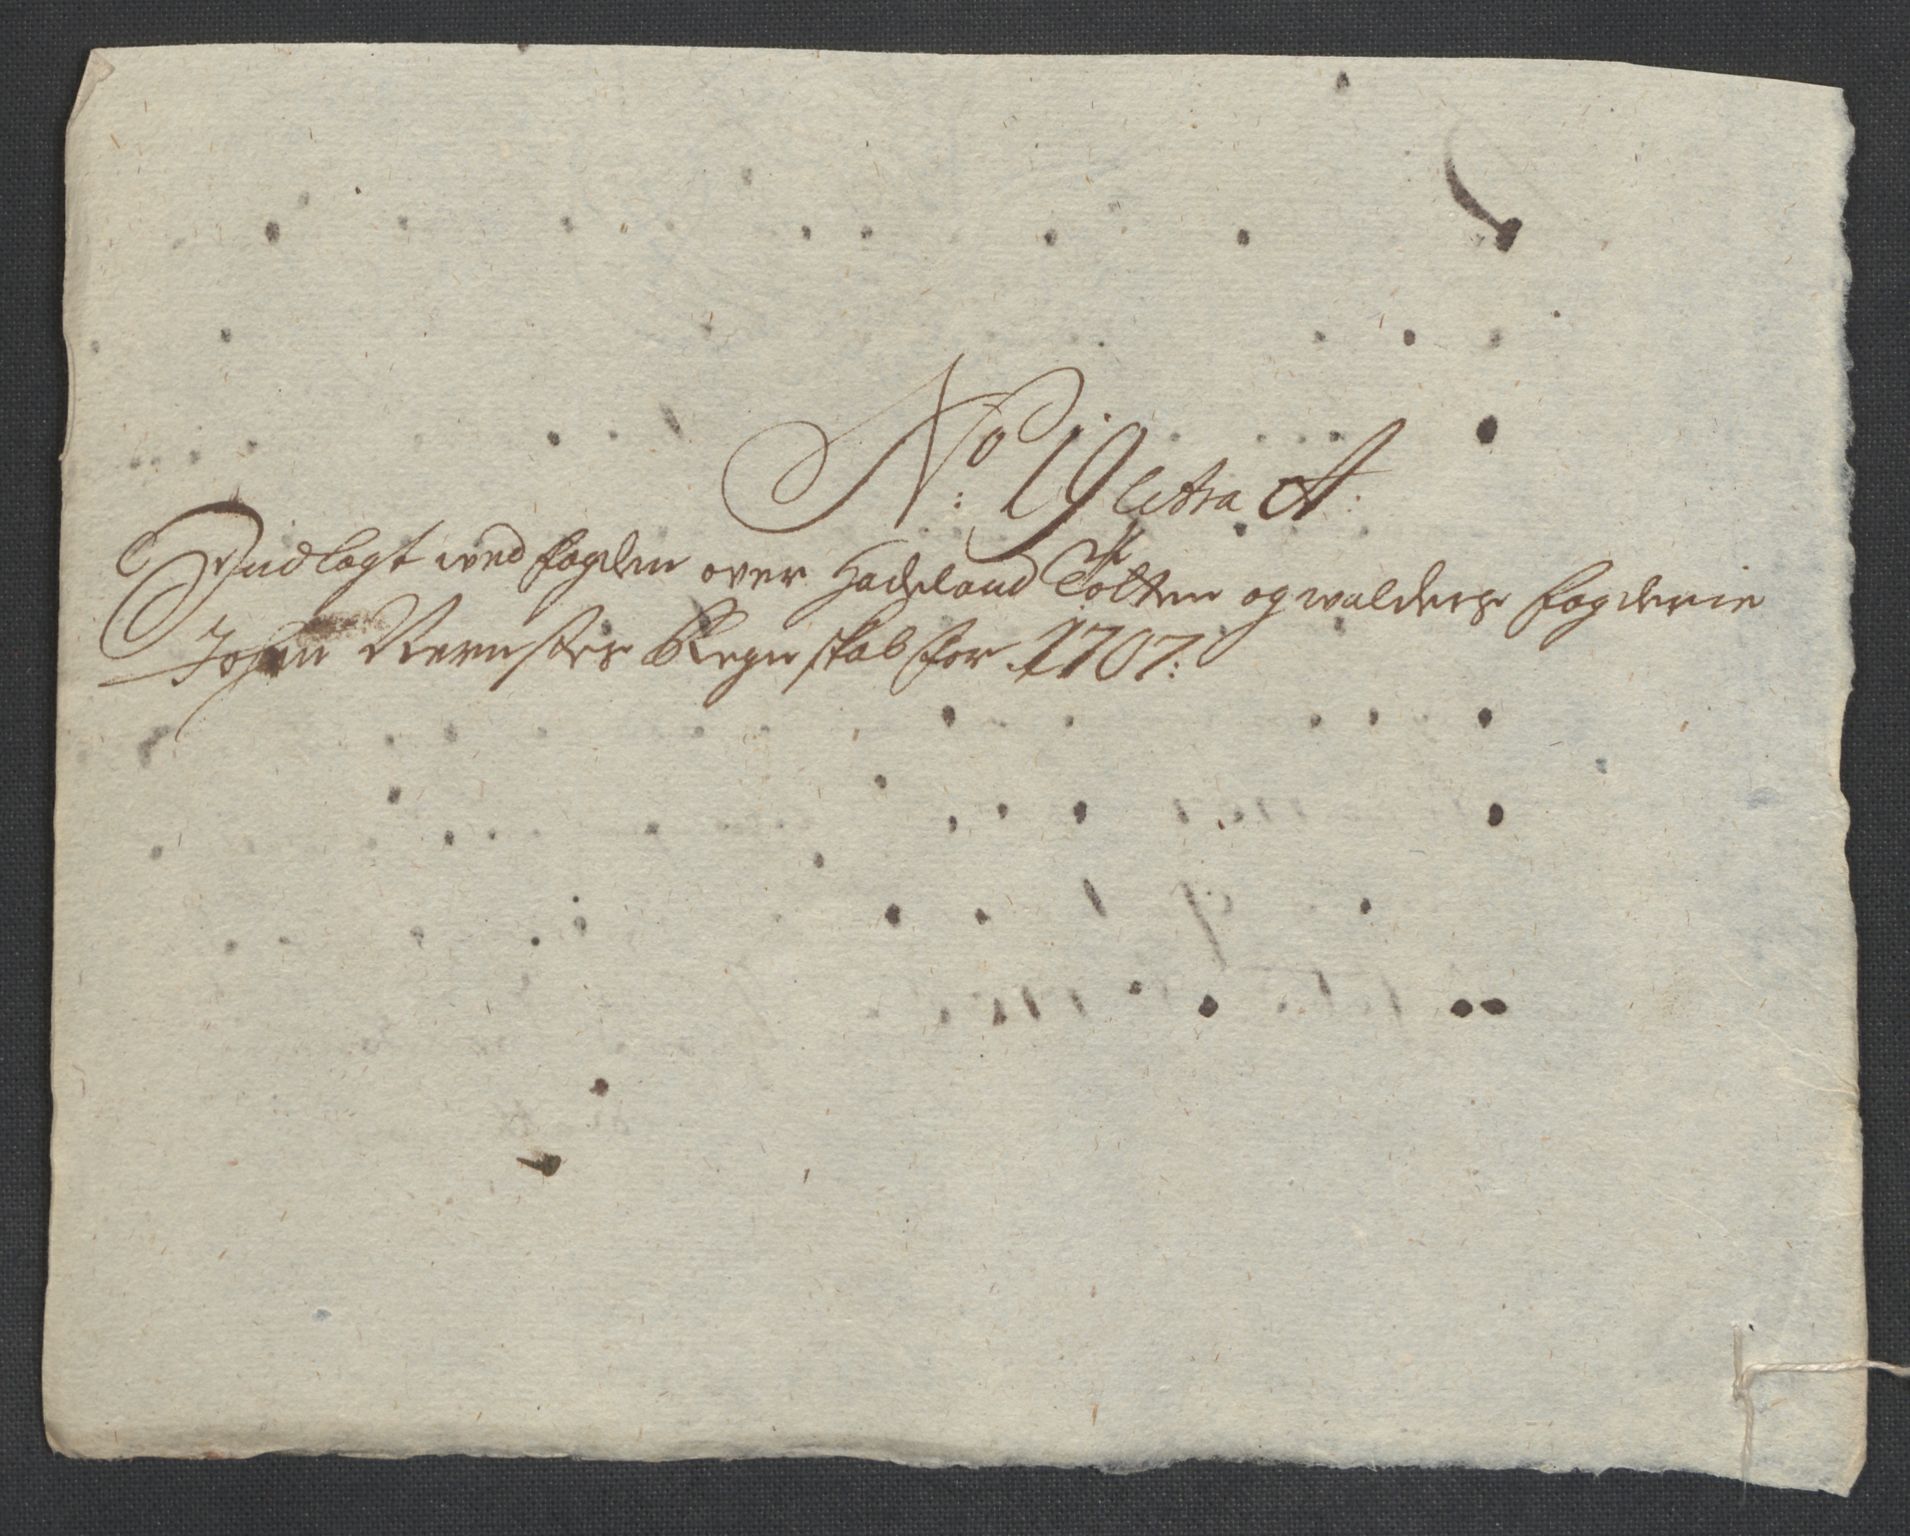 No: 19 litra A:
Indlagt wed fogden over Hadeland Totten og walders fogderie
Johan Nernstes Regnskab for 1707: